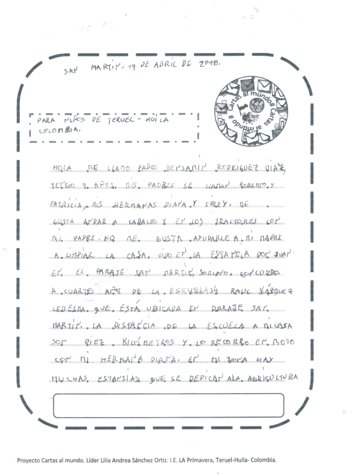 SAN MARTIN, 19 DE ABRIL DE 2018.
Cartas al mundo
PARA NIÑOS DE TERUEL - HUILA
COLOMBIA.
HOLA ME LLAMO BENJAMIN RODRIGUEZ DIAZ,
TENGO 9 AÑOS. MIS PADRES SE LLAMAN ROBERTO Y
PATRICIA, MIS HERMANAS DIANA Y SIRLEY. ME
GUSTA ANDAR A CABALLO Y EN LOS TRACTORES CON
MI PADRE, ME GUSTA AYUDARLE A MI MADRE
A LIMPIAR LA CASA. VIVO EN LA ESTANCIA DON JUAN
EN EL PARAJE SAN MARTIN, SORIANO. CONCURRO
A CUARTO AÑO DE LA ESCUELA RAUL VAZQUEZ
LEDESMA QUE ESTÁ UBICADA EN PARAJE SAN
MARTIN. LA DISTANCIA DE LA ESCUELA A MI CASA
SON DIEZ KILOMETROS Y LO RECORRO EN MOTO
CON MI HERMANA DIANA. EN MI ZONA HAY
MUCHAS ESTANSIAS QUE SE DEDICAN A LA AGRICULTURA
Proyecto Cartas al mundo. Líder Lilia Andrea Sánchez Ortiz. I.E. LA Primavera, Teruel-Huila- Colombia.